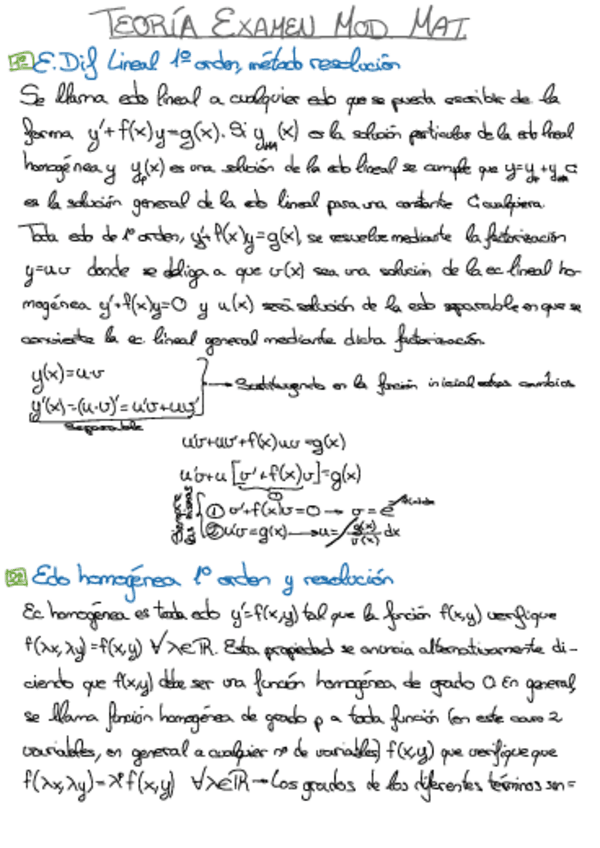 TEORÍA EXAMEN MOD. MAT.
1º E. Dif Lineal 1º orden, método resolución
Se llama edo lineal a cualquier edo que se pueda escribir de la
forma y'+f(x)y=g(x). Si y (x) es la solución particular de la edo lineal
homogénea y yp(x) es una solución de la edo lineal se cumple que y=yp+y C
es la solución general de la edo lineal para una constante C cualquiera.
Toda edo de 1º orden, y'+f(x)y=g(x), se resuelve mediante la factorización
y=uv donde se obliga a que v(x) sea una solución de la ec lineal ho-
mogénea y'+f(x)y=0 y u(x) será solución de la edo separable en que se
convierte la ec lineal general mediante dicha factorización.
y(x)=u·v
y'(x)=(u·v)'=u'v+uv' → Sustituyendo en la función inicial estos cambios
Separable
u'v+uv'+f(x)uv=g(x)
u'v+u[v'+f(x)v]=g(x)
0
Siempre las mismas
① v'+f(x)v=0 → v=e^-∫f(x)dx
② u'v=g(x) → u=∫g(x)/v(x) dx
2º Edo homogénea 1º orden y resolución
Ec homogénea es toda edo y'=f(x,y) tal que la función f(x,y) verifique
f(λx,λy)=f(x,y) ∀λ∈ℝ. Esta propiedad se enuncia alternativamente di-
ciendo que f(x,y) debe ser una función homogénea de grado 0. En general,
se llama función homogénea de grado p a toda función (en este caso 2
variables, en general a cualquier nº de variables) f(x,y) que verifique que
f(λx,λy)=λᵖf(x,y) ∀λ∈ℝ → Los grados de los diferentes términos son =